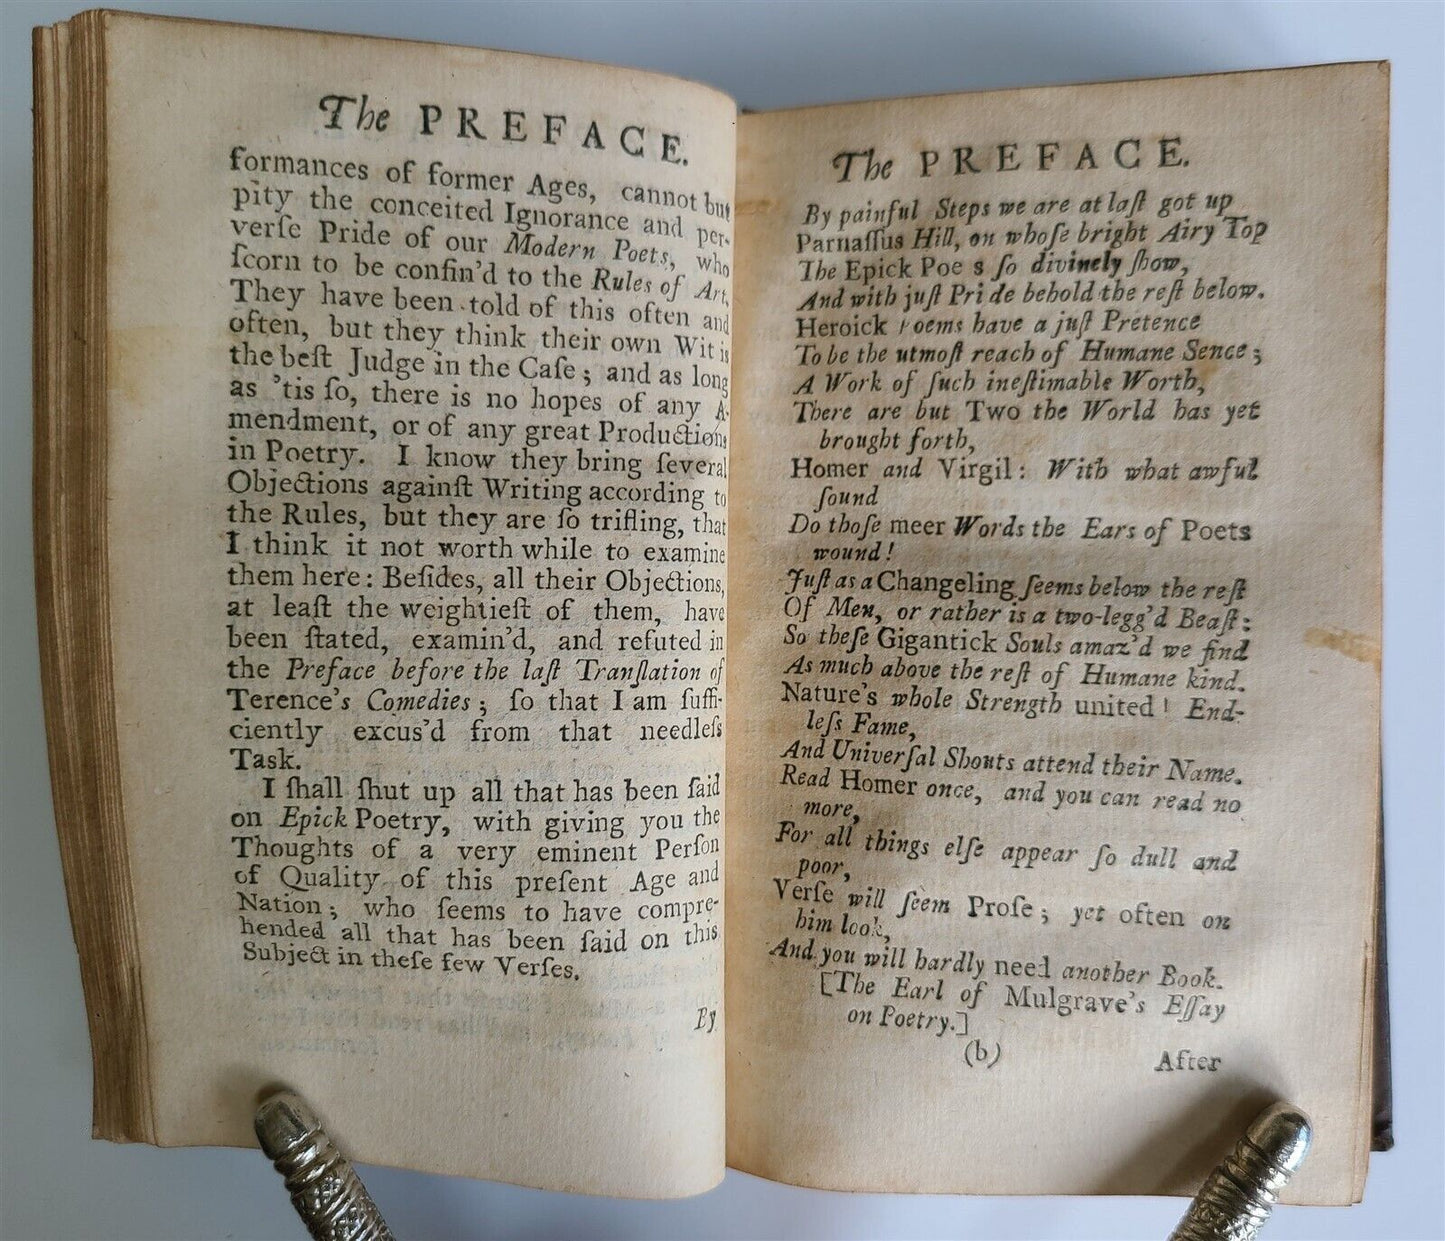 The PREFACE.
formances of former Ages, cannot but
pity the conceited Ignorance and per-
verſe Pride of our Modern Poets, who
ſcorn to be confin'd to the Rules of Art,
They have been told of this often and
often, but they think their own Wit is
the beſt Judge in the Caſe; and as long
as 'tis ſo, there is no hopes of any A-
mendment, or of any great Productions
in Poetry. I know they bring ſeveral
Objections againſt Writing according to
the Rules, but they are ſo trifling, that
I think it not worth while to examine
them here: Beſides, all their Objections,
at leaſt the weightieſt of them, have
been ſtated, examin'd, and refuted in
the Preface before the laſt Tranſlation of
Terence's Comedies; ſo that I am ſuffi-
ciently excus'd from that needleſs
Task.
I ſhall ſhut up all that has been ſaid
on Epick Poetry, with giving you the
Thoughts of a very eminent Perſon
of Quality of this preſent Age and
Nation; who ſeems to have compre-
hended all that has been ſaid on this
Subject in theſe few Verſes.
By
The PREFACE.
By painful Steps we are at laſt got up
Parnaſſus Hill, on whoſe bright Airy Top
The Epick Poe s ſo divinely ſhow,
And with juſt Pride behold the reſt below.
Heroick Poems have a juſt Pretence
To be the utmoſt reach of Humane Sence;
A Work of ſuch ineſtimable Worth,
There are but Two the World has yet
brought forth,
Homer and Virgil: With what awful
ſound
Do thoſe meer Words the Ears of Poets
wound!
Juſt as a Changeling ſeems below the reſt
Of Men, or rather is a two-legg'd Beaſt:
So theſe Gigantick Souls amaz'd we find
As much above the reſt of Humane kind.
Nature's whole Strength united! End-
leſs Fame,
And Univerſal Shouts attend their Name.
Read Homer once, and you can read no
more,
For all things elſe appear ſo dull and
poor,
Verſe will ſeem Proſe; yet often on
him look,
And you will hardly need another Book.
[The Earl of Mulgrave's Eſſay
on Poetry.]
(b)
After